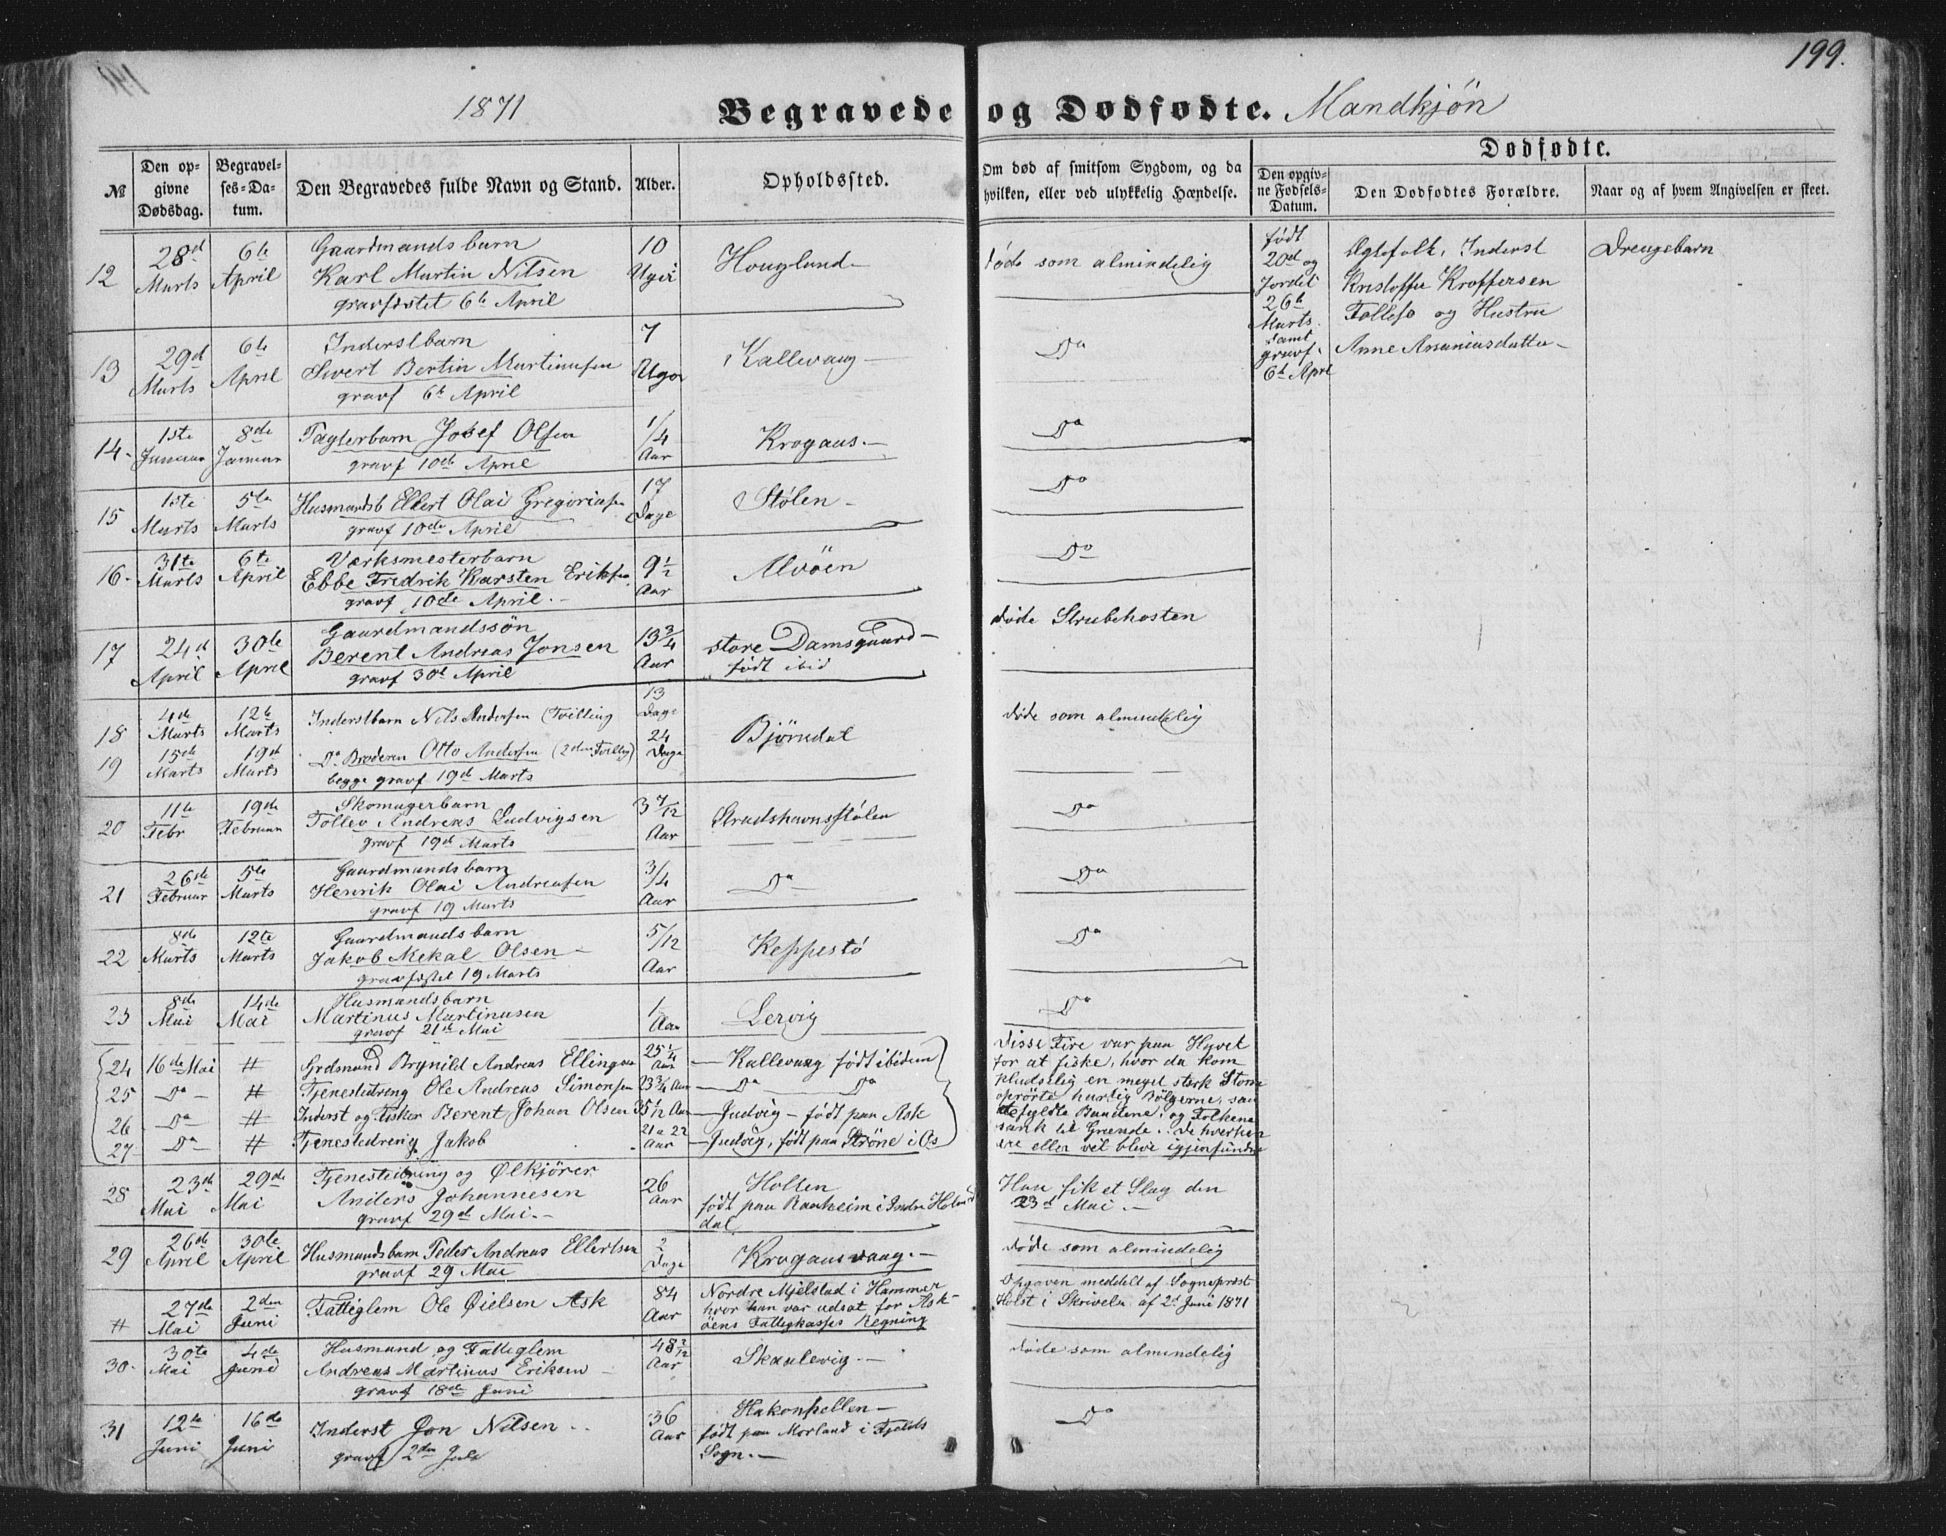 199.
1871
Begravede og Dødfødte. Mandkjøn
№
Den opgivne Dødsdag.
Begravelses-Datum.
Den Begravedes fulde Navn og Stand.
Alder.
Opholdssted.
Om død af smitsom Sygdom, og da
hvilken, eller ved ulykkelig Hændelse.
Dødfødte.
Den opgivne Fødsels-Datum.
Den Dødfødtes Forældre.
Naar og af hvem Angivelsen er skeet.
12 28d Marts 6te April
Gaardmandsbarn
Karl Martin Nilsen
gravfæstet 6te April
10 Uger
Hougland
døde som almindelig
født
20d og
Jordet
26de
Marts
samt
gravf.
6te Apri
Ægtefolk, Inderst
Kristoffer Kroffersen
Follesø og Hustru
Anne Ananiasdatter
Drengebarn
13 29d Marts 6te April
Inderstbarn
Sivert Bertin Martinusen
gravf 6te April
7 Uger
Kallevaag
Do
14 1ste Januar 8de Januar
Josef Olsen
gravf 10de April
1/4 Aar
Krogaas
Do
15 1ste Marts 5te Marts
Husmandsb Ellert Olai Gregoriusen
gravf 10de April
17 Dage
Stølen
Do
16 31te Marts 6te April
Værksmesterbarn
Ebbe Fredrik Karsten Eriksen
gravf 10de April
9½ Aar
Alvøen
Do
17 24d April 30te April
Gaardmandssøn
Berent Andreas Jonsen
gravf 30te April
13 3/4 Aar
store Damsgaard
født ibid
døde Strubehosten
18 4de Marts 12te Marts
Inderstbarn Nils Andersen (Tvilling
13 Dage
Bjørndal
døde som almindelig
19 15de Marts 19de Marts
Do Broderen Otto Andersen (2den Tvilling)
begge gravf 19de Marts
24 Dage
20 11te Febr 19de Februar
Skomagerbarn
Tollev Andreas Ludvigsen
gravf 19de Marts
3 7/12 Aar
Strudshavnsstølen
Do
21 26de Februar 5te Marts
Gaardmandsbarn
Henrik Olai Andreasen
gravf 19 Marts
3/4 Aar
Do
Do
22 8de Marts 12te Marts
Gaardmandsbarn
Jakob Mekal Olsen
gravfæstet 19 Marts
5/12 Aar
Keppestø
Do
23 8de Mai 14de Mai
Husmandsbarn
Martinus Martinusen
gravf 21de Mai
1 Aar
Lervig
Do
24 16de Mai # Grdmand Brynild Andreas Ellingsen 25¼ Aar Kallevaag født ibidem
25 Do # Tjenestedreng Ole Andreas Simonsen 23¾ Aar Do Do
26 Do # Inderst og Fisker Berent Johan Olsen 35 1/12 Aar Judvig født paa Ask
27 Do # Tjenestedreng Jakob 21 a 22 Aar Judvig, født paa Strøne i Os
Disse Fire var paa Havet
for at fiske, hvor da kom
pludselig en meget sterk Storm
oprørte hurtig Bølgerne, saa
de fyldte Baadene, og Folkene
sank til Grunde. De hverken
ere eller vil blive igjenfundne
28 23de Mai 29de Mai
Tjenestedreng og Ølkjører
Anders Johannesen
gravf 29de Mai
26 Aar
Holten
født paa Raaheim i Indre Holm
dal
Han fik et Slag den
23d Mai
29 26de April 30te April
Husmandsbarn Peder Andreas Ellertsen
gravf 29 Mai
2 Dage
Krogaasvaag
døde som almindelig
# 27de Mai 2den Juni
Fattiglem Ole Øielsen Ask
84 Aar
Nordre Mjelstad i Hammer
hvor han var udsat for Ask-
øens Fattigkasses Regning
Opgaven meddelt af Sogneprest
Holst i Skrivelse af 2d Juni 1871
30 30te Mai 4de Juni
Husmand og Fattiglem
Andreas Martinus Eriksen
gravf 18de Juni
48 2/12 Aar
Skaalevig
døde som almindelig
31 12te Juni 16de Juni
Inderst Jon Nilsen
gravf 2den Juli
36 Aar
Hakonshellen
født paa Morland i Fjelds
Sogn.
Do